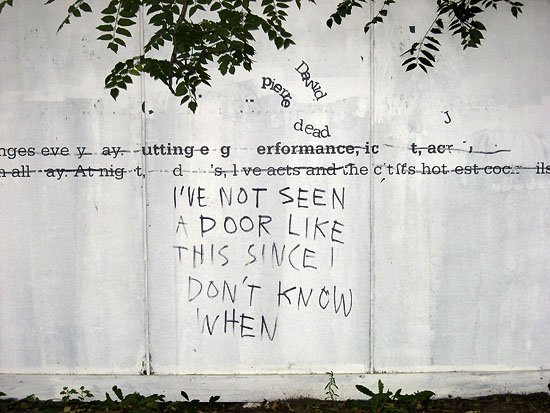 David
pierre
dead
J
nges eve y ay. utting e g erformance, ic t, acr
all ay. At nig t, d 's, l ve acts and the c t s hot est coc ils
I'VE NOT SEEN
A DOOR LIKE
THIS SINCE I
DON'T KNOW
WHEN